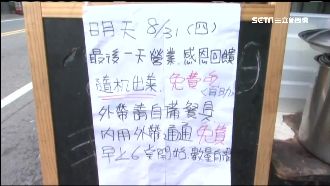 SETN 三立新聞網
明天 8/31 (四)
最後一天營業,感恩回饋
隨机出菜,免費
外帶請自備餐具
內用外帶通通免費
早上6點開始,數量有限